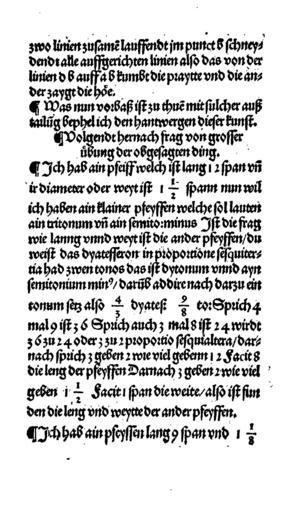 zwo linien zusamē lauffendt jm punct b schney⸗
dendt alle auffgerichten linien also das von der
linien d b auff a b kumbt die praytte vnd die an⸗
der zaygt die höe.
¶ Was nun vo:baß ist zu thuē mit sulcher auß
tailūg bephel ich den hantwergen dieser kunst.
¶ Volgendt hernach frag von grosser
übung der obgesagten ding.
¶ Ich hab ain pfeiff welch ist lang 1 2 span vñ
ir diameter oder weyt ist 1 1/2 spann nun wil
ich haben ain klainer pfeyffen welche sol lauten
ain tritonum vñ ain semito:minus Ist die frag
wie lanng vnnd weyt ist die ander pfeyffen/du
weist das dyatesseron in proportione sesquiter⸗
tia had zwen tonos das ist dytonum vnnd ayn
semitonium min⁹/ darüb addire nach darzu ein
tonum setz also 4/3 dyates̄ 9/8 to: Sprich 4
mal 9 ist 3 6 Sprich auch 3 mal 8 ist 2 4 wirdt
3 6 zu 2 4 oder 3 zu 2 proportio sesquialtera/dar⸗
nach sprich 3 geben 2 wie viel gebenn 1 2 Facit 8
die leng der pfeyffen Darnach 3 geben 2 wie viel
geben 1 1/2 Facit 1 span die weite/also ist fun
den die leng vnd weytte der ander pfeyffen.
¶ Ich hab ain pfeyffen lang 9 span vnd 1 1/8